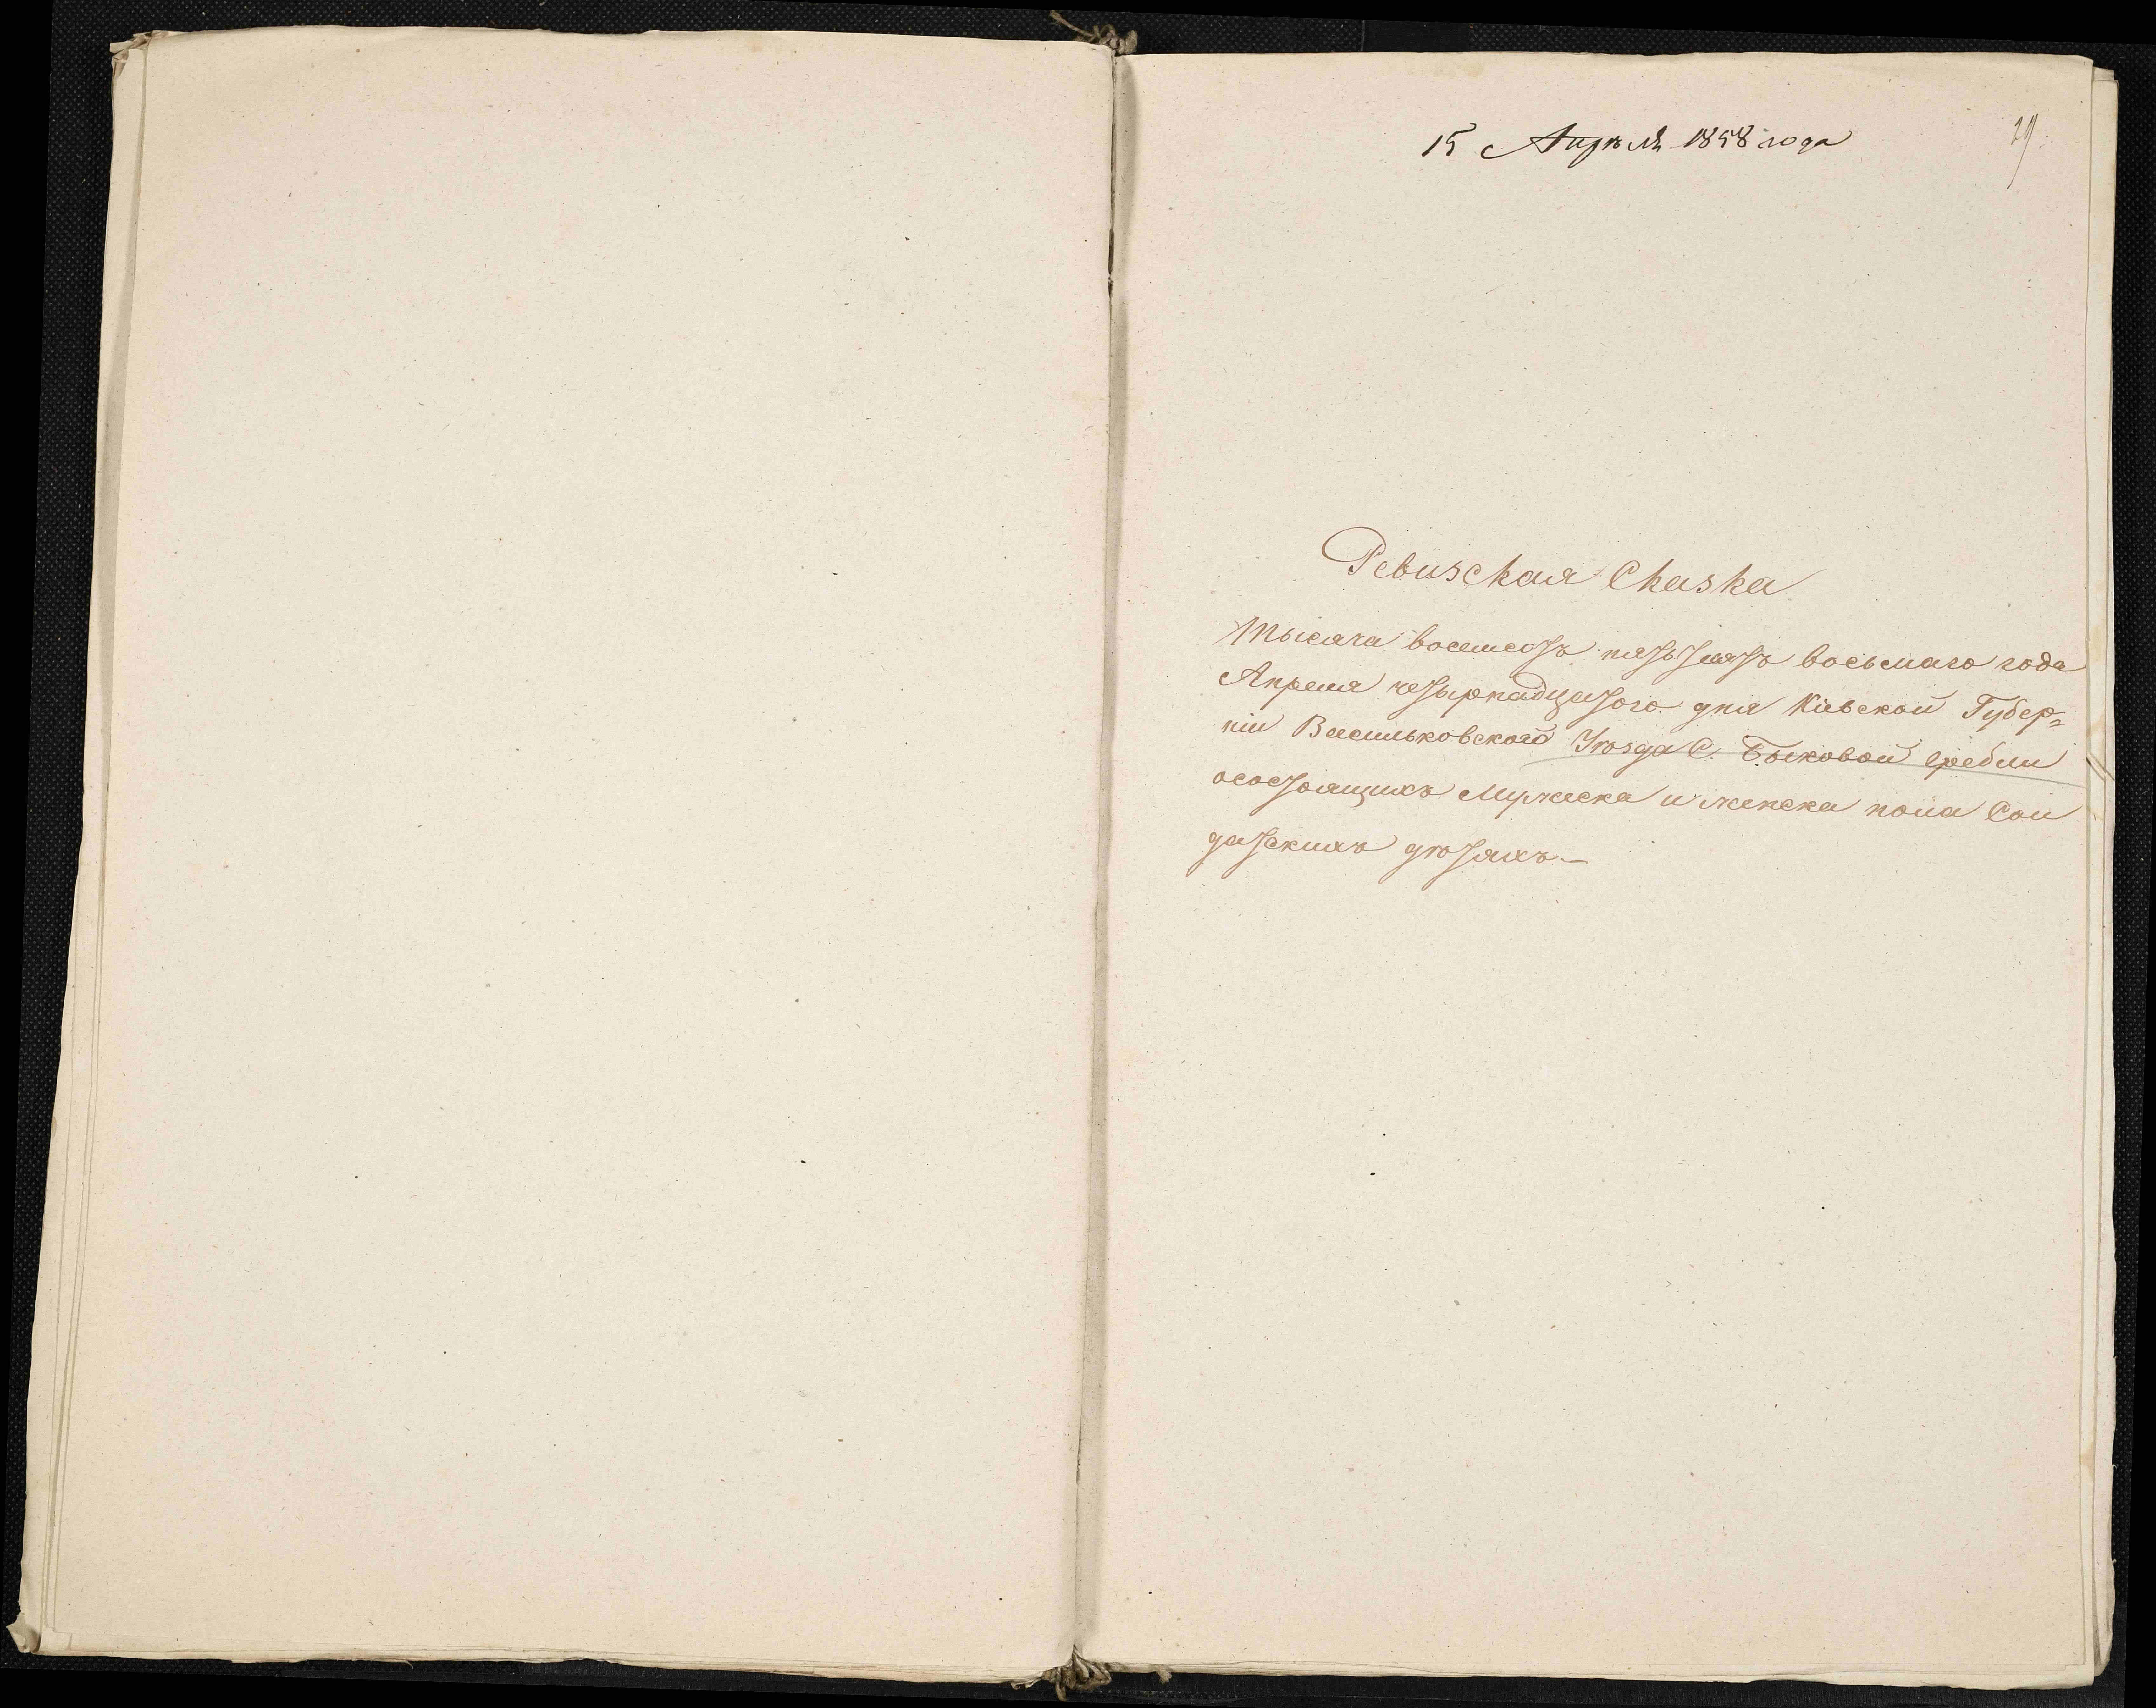 15 Апрѣля 1858 года
29.
Ревизская Сказка
Тысяча восемсотъ пятьдесятъ восьмаго года
Апреля четырнадцатого дня Кіевской Губер=
ніи Васильковского Уѣзда С. Быковой гребли
осостоящихъ Мужеска и женска пола Сол
датскихъ дѣтяхъ.—